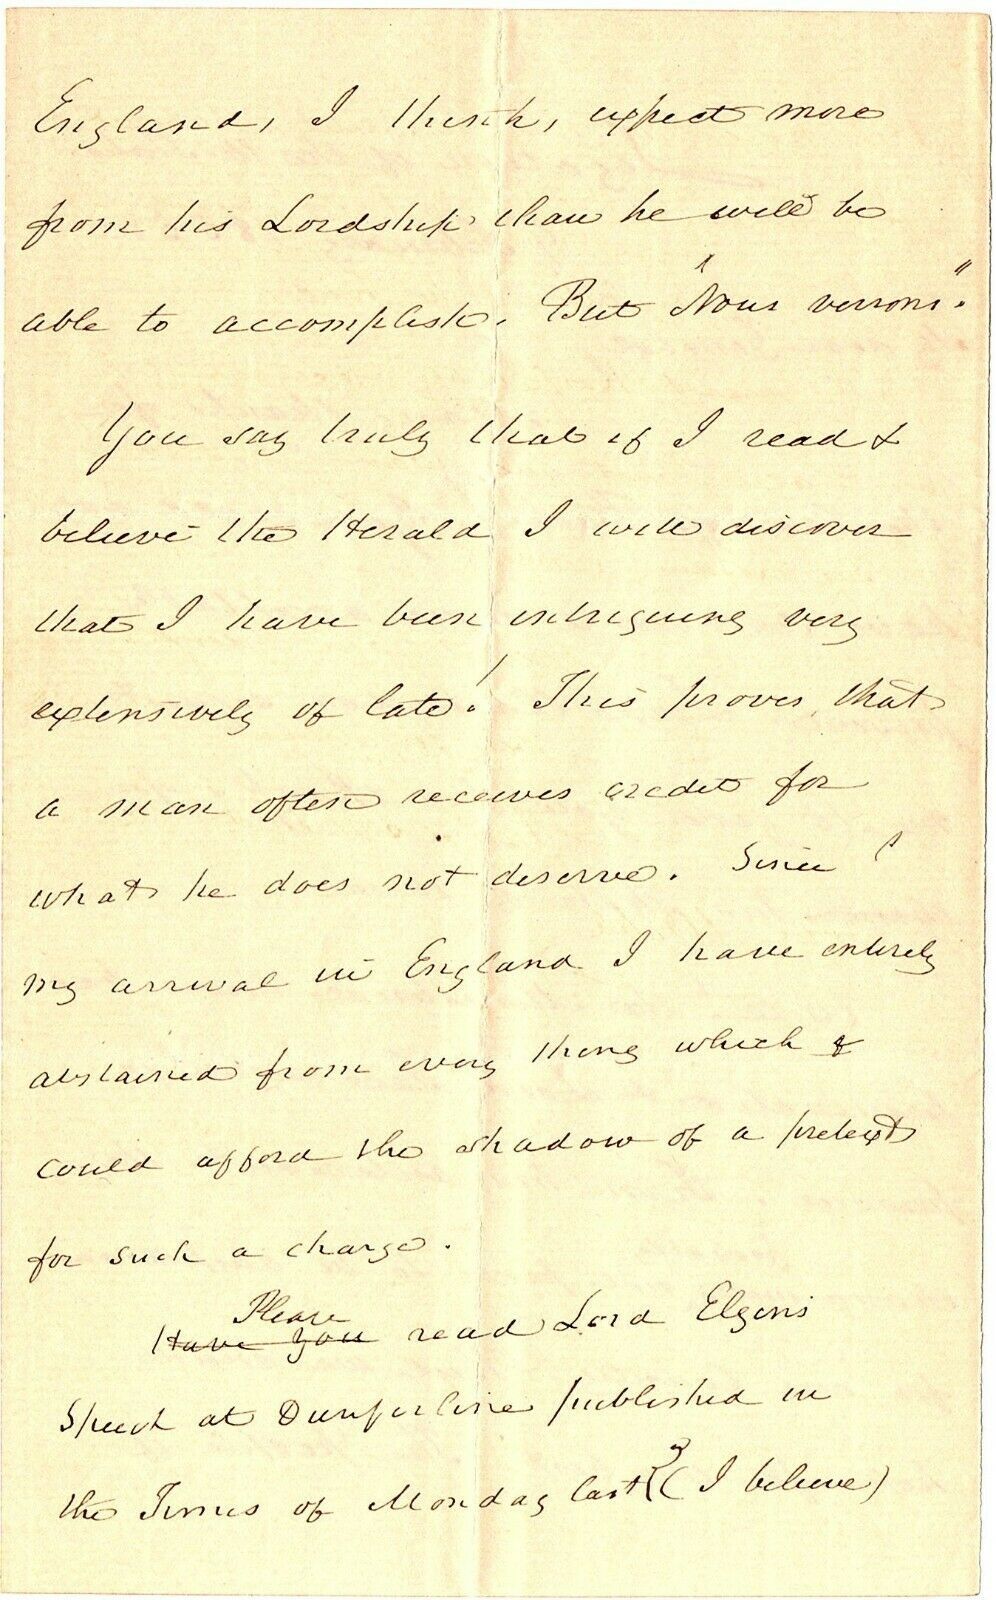 England, I think, expect more
from his Lordship than he will be
able to accomplish. But "Nous verrons".
You say truly that if I read &
believe the Herald I will discover
that I have been intriguing very
extensively of late! This proves that
a man often receives credit for
what he does not deserve. Since
my arrival in England I have entirely
abstained from every thing which
could afford the shadow of a pretext
for such a charge.
Please
Have you read Lord Elgin's
Speech at Dunferline published in
the Times of Monday last (I believe)